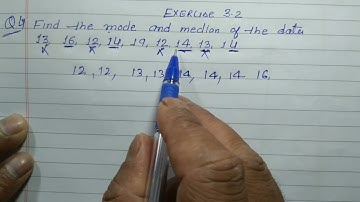 EXERCISE 3.2
Q4 Find the mode and median of the data
13, 16, 12, 14, 19, 12, 14, 13, 14
12, 12, 13, 13, 14, 14, 14 16,